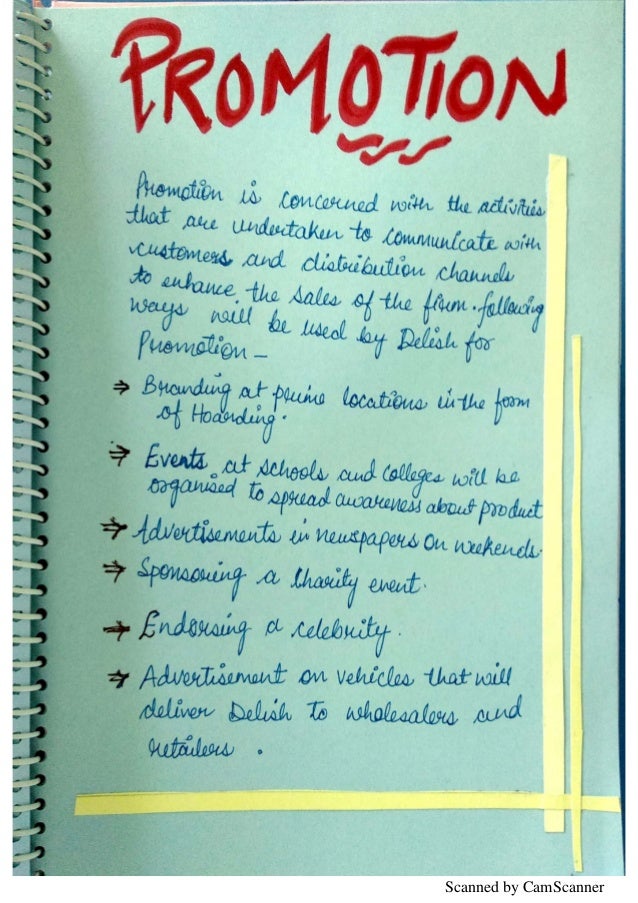 PROMOTION
Promotion is concerned with the activities
that are undertaken to communicate with
customers and distribution channels
to enhance the sales of the firm. following
ways will be used by Delish for
Promotion –
⇒ Branding at prime locations in the form
of Hoarding.
⇒ Events at schools and colleges will be
organised to spread awareness about product
⇒ Advertisements in newspapers on weekends.
⇒ Sponsoring a charity event.
⇒ Endorsing a celebrity.
⇒ Advertisement on vehicles that will
deliver Delish to wholesalers and
retailers.
Scanned by CamScanner